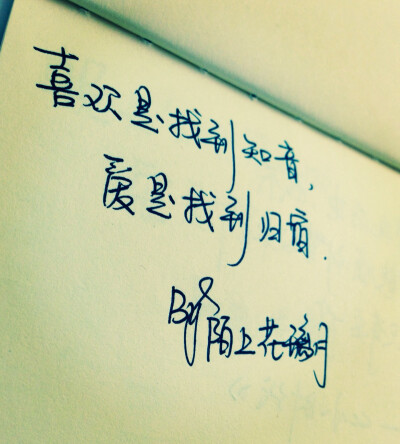 喜欢是找到知音,
爱是找到归宿.
By 陌上花璃月